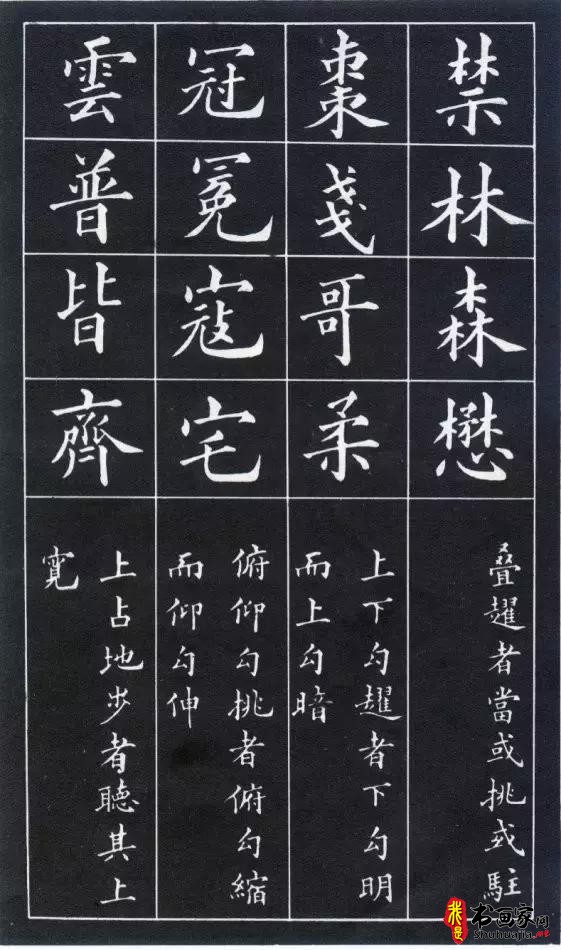 禁林森懋
叠趯者當或挑或駐
棗戔哥柔
上下勾趯者下勾明
而上勾暗
冠冕寇宅
俯仰勾挑者俯勾縮
而仰勾伸
雲普皆齊
上占地步者聽其上
寬
我是
书画家网
Shuhuajia.net